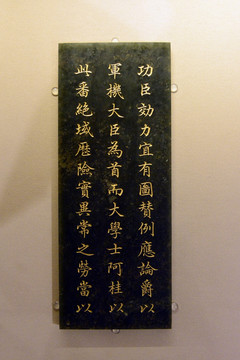 功臣効力宜有圖賛例應論爵以
軍機大臣為首而大學士阿桂以
此番絶域歴險實異常之勞當以